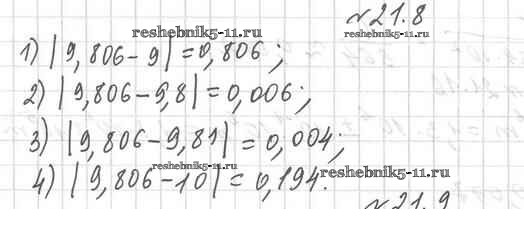 №21.8
reshebnik5-11.ru reshebnik5-11.ru
1) |9,806-9|=0,806;
2) |9,806-9,8|=0,006;
3) |9,806-9,81|=0,004;
reshebnik5-11.ru reshebnik5-11.ru
4) |9,806-10|=0,194.
№21.9